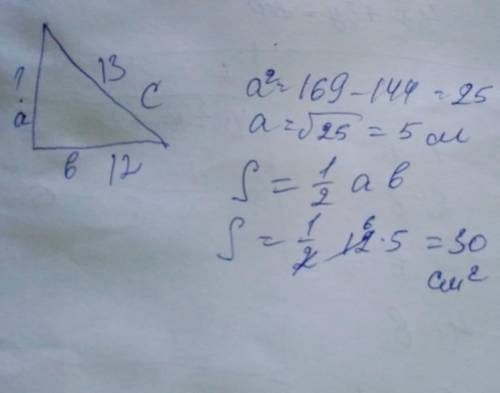 ?
a
13
C
в 12
a² = 169 - 144 = 25
a = √25 = 5 см
S = 1/2 а в
S = 1/2 12 6 · 5 = 30
см²